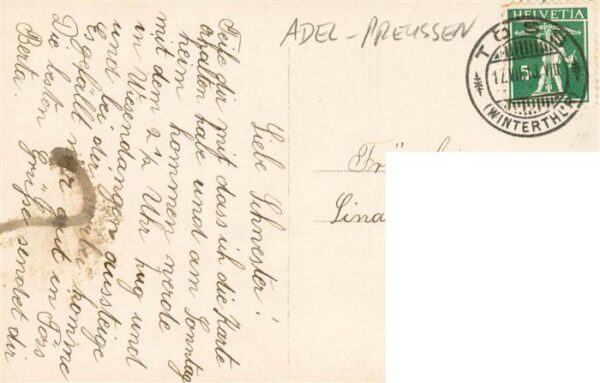 ADEL-PREUSSEN
HELVETIA
5
TÖSS
(WINTERTHUR)
Liebe Schwester!
Teile dir mit dass ich die Karte
erhalten habe und am Sonntag
heim kommen werde
mit dem 2 1/2 Uhr Zug und
in Wiesendangen aussteige
und bei dir komme
Es gefällt mir gut in Töss
Die besten Grüsse sendet dir
Berta.
Lina